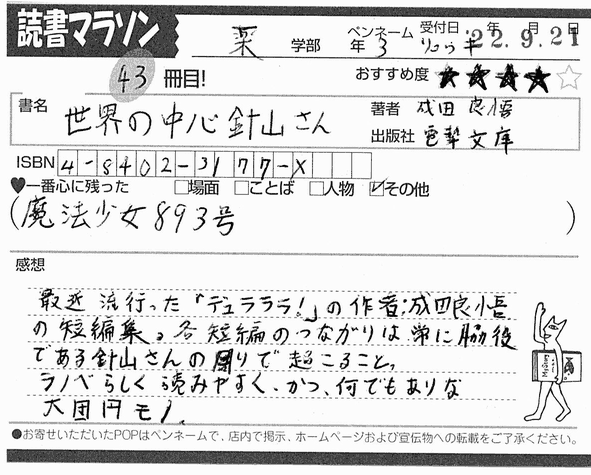 読書マラソン
薬 学部 年 3 ペンネーム リュウキ 受付日 '22.9.21 年 月 日
43 冊目! おすすめ度 ★★★★☆
書名 世界の中心針山さん 著者 成田良悟
出版社 電撃文庫
ISBN 4-8402-3177-X
♥一番心に残った □場面 □ことば □人物 ☑その他
(魔法少女893号 )
感想
最近流行った「デュラララ!」の作者:成田良悟
の短編集。各短編のつながりは常に脇役
である針山さんの周りで起こること。
ラノベらしく読みやすく、かつ、何でもありな
大団円モノ。
●お寄せいただいたPOPはペンネームで、店内で掲示、ホームページおよび宣伝物への転載をご了承ください。